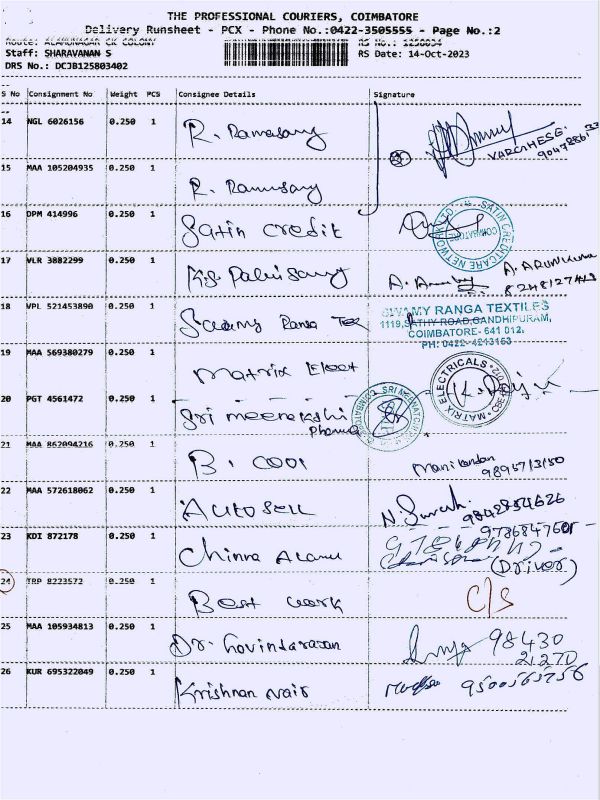 THE PROFESSIONAL COURIERS, COIMBATORE
Delivery Runsheet - PCX - Phone No.:0422-3505555 - Page No.:2
Route: ALAMUNAGAR CK COLONY RS No.: 1258034
Staff: SHARAVANAN S RS Date: 14-Oct-2023
DRS No.: DCJB125803402
S No Consignment No Weight PCS Consignee Details Signature
14 NGL 6026156 0.250 1 R. Ramasamy VARGHESE
15 MAA 105204935 0.250 1 R. Ramasamy
16 DPM 414996 0.250 1 Satin credit SATIN CREDITCARE NETWORK COIMBATORE
17 VLR 3882299 0.250 1 K.S. Palanisamy
18 VPL 521453890 0.250 1 Swamy Ranga Tex SWAMY RANGA TEXTILES
1119,SATHY ROAD,GANDHIPURAM,
COIMBATORE- 641 012.
PH: 0422-4213163
19 MAA 569380279 0.250 1 Matrix Elect MATRIX ELECTRICALS
20 PGT 4561472 0.250 1 Sri meenakshi Pharma
21 MAA 862094216 0.250 1 B. Manikandan
22 MAA 572618062 0.250 1 Auto sell N. Suresh 9842854626
23 KDI 872178 0.250 1 Chinna (Driver)
24 TRP 8223572 0.250 1 Best work C/S
25 MAA 105934813 0.250 1 Dr. Govindarajan 98430
21270
26 KUR 695322049 0.250 1 Krishnan Nair